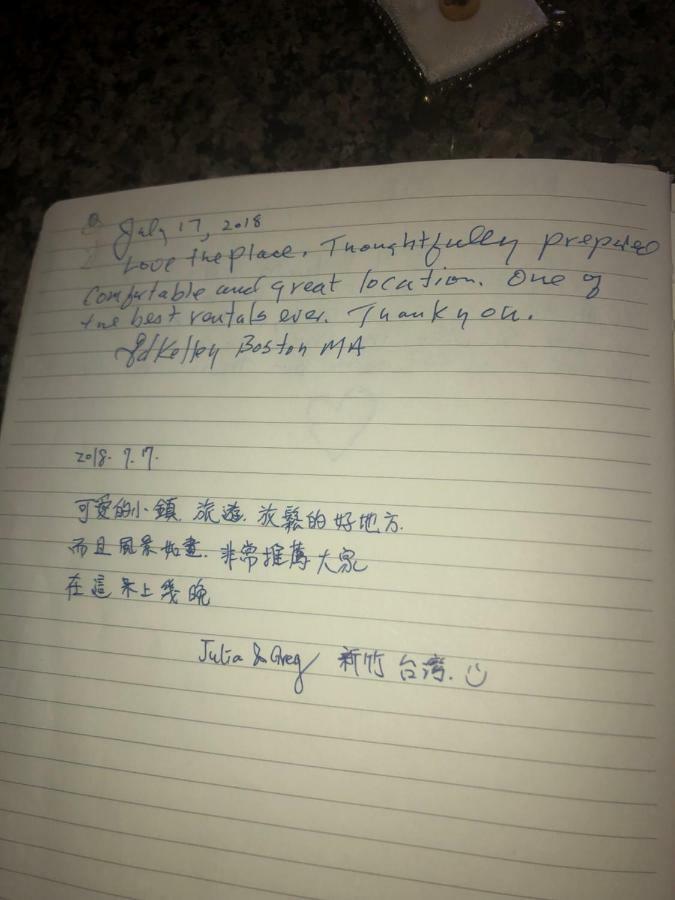 July 17, 2018
Love the place. Thoughtfully prepared
Comfortable and great location. One of
the best rentals ever. Thank you.
Ed Kelley Boston MA
2018. 7. 7.
可愛的小鎮. 旅遊. 放鬆的好地方.
而且風景如畫. 非常推薦大家
在這来上幾晚
Julia & Greg 新竹 台湾. ☺